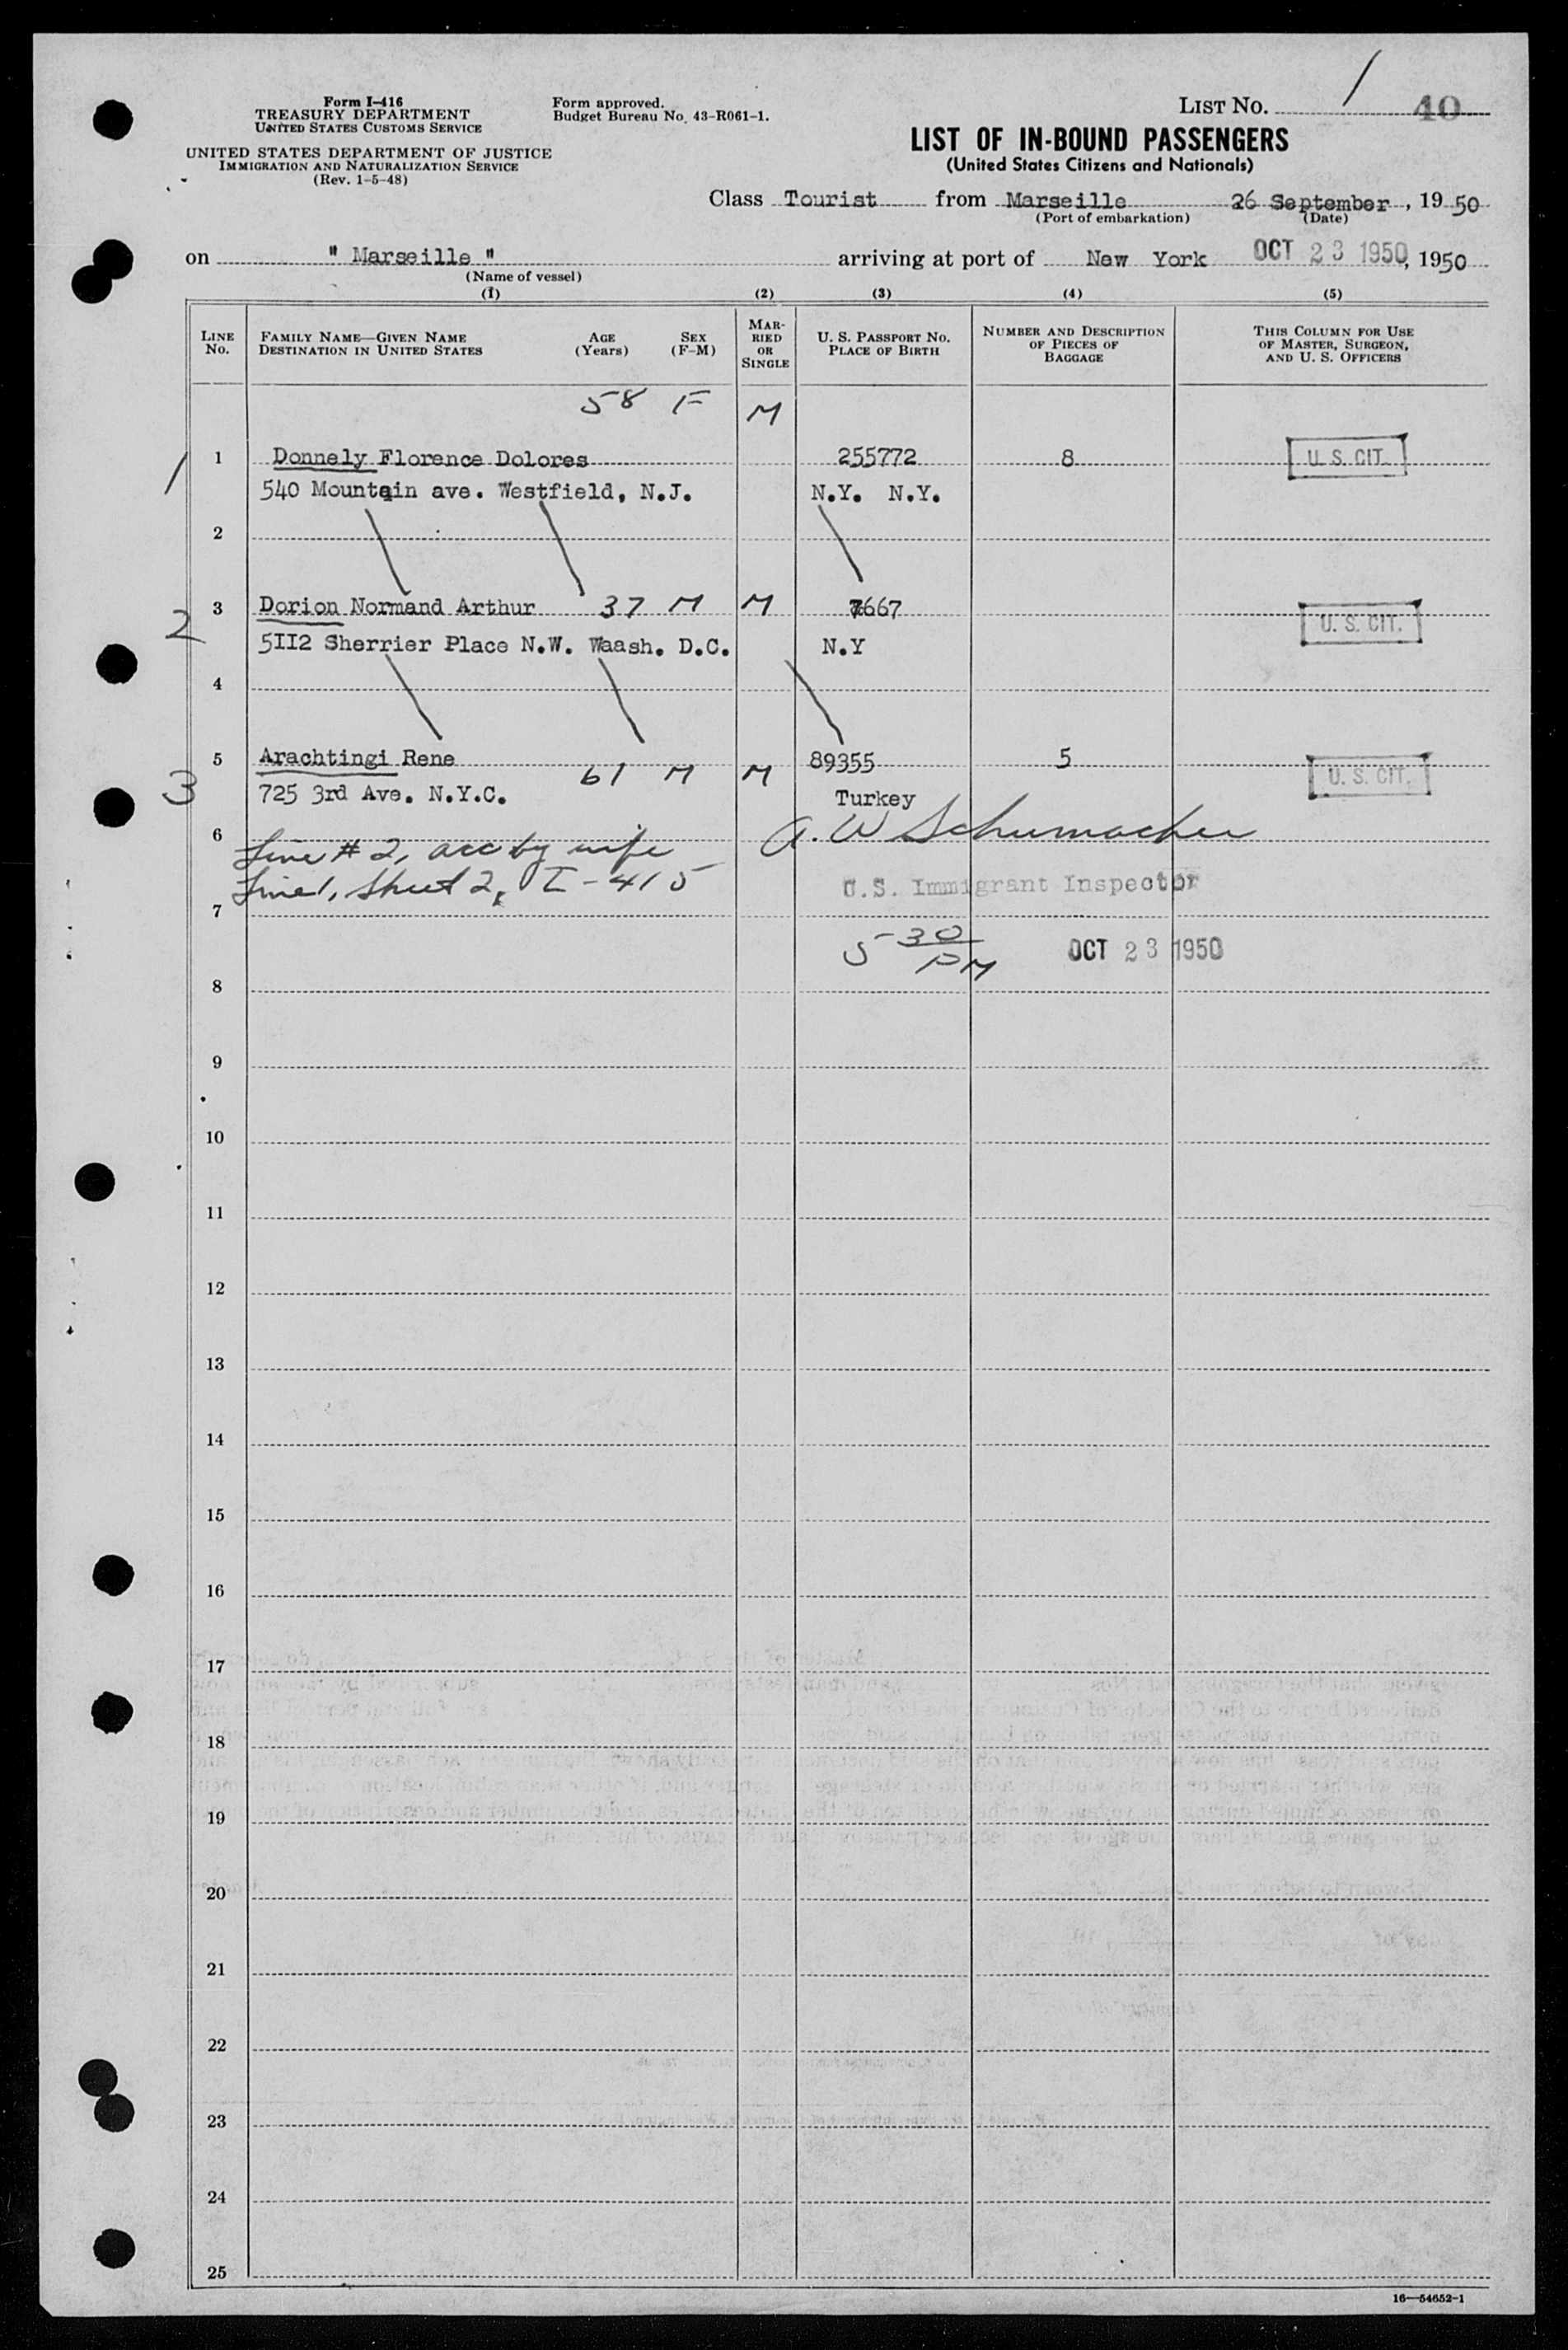 Form I-416
TREASURY DEPARTMENT
UNITED STATES CUSTOMS SERVICE
UNITED STATES DEPARTMENT OF JUSTICE
IMMIGRATION AND NATURALIZATION SERVICE
(Rev. 1-5-48)
Form approved.
Budget Bureau No. 43-R061-1.
LIST NO. 1 40
LIST OF IN-BOUND PASSENGERS
(United States Citizens and Nationals)
Class Tourist from Marseille 26 September, 1950
(Port of embarkation) (Date)
on " Marseille " arriving at port of New York OCT 23 1950, 1950
(Name of vessel)
(1) (2) (3) (4) (5)
LINE NO.
FAMILY NAME—GIVEN NAME
DESTINATION IN UNITED STATES
AGE (Years)
SEX (F-M)
MARRIED OR SINGLE
U. S. PASSPORT NO.
PLACE OF BIRTH
NUMBER AND DESCRIPTION
OF PIECES OF
BAGGAGE
THIS COLUMN FOR USE
OF MASTER, SURGEON,
AND U. S. OFFICERS
58 F M
1 1 Donnely Florence Dolores 255772 8 U. S. CIT.
540 Mountain ave. Westfield, N.J. N.Y. N.Y.
2
2 3 Dorion Normand Arthur 37 M M 7667 U. S. CIT.
5II2 Sherrier Place N.W. Waash. D.C. N.Y
4
3 5 Arachtingi Rene 61 M M 89355 5 U. S. CIT.
725 3rd Ave. N.Y.C. Turkey
6
A. W Schumacher
Line # 2, acc by wife
Line 1, Sheet 2, I-415
U.S. Immigrant Inspector
7
5 30 PM OCT 23 1950
8
9
10
11
12
13
14
15
16
17
18
19
20
21
22
23
24
25
16—54652-1